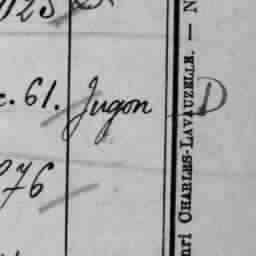 023
c. 61. Jugon D
276
nri CHARLES-LAVAUZELLE. — N